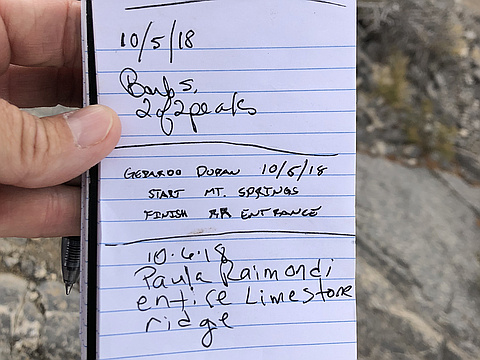 10/5/18
Barb S,
2 of 2 peaks
GERARDO DURAN 10/5/18
START MT. SPRINGS
FINISH RR ENTRANCE
10.6.18
Paula Raimondi
entire Limestone
ridge